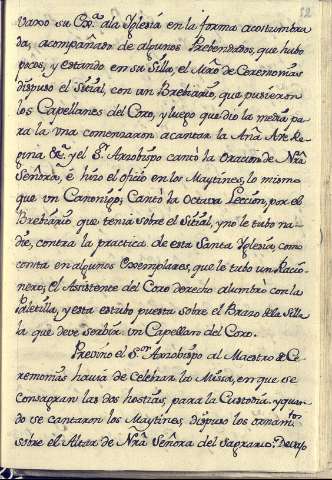 52
varon su Ex.ª ala Iglesia en la forma acostumbra
da, acompañado de algunos Prebendados, que hubo
pocos, y estando en su Silla, el Mro de Ceremonias
dispuso el sitial, con un Brebiario, que pusieron
los Capellanes del Coro, y luego que dio la media pa
ra la vna comenzaron acantar la Aña Ave Re
gina &c.ª y el S.r Arzobispo cantò la Oracion de Nrã
Señora, è hizo el oficio en los Maytines, lo mismo
que vn Canonigo; Cantò la Octava Leccion, por el
Brebiario que tenia sobre el Sitial, y no le tubo na-
die, contra la practica de esta Santa Iglesia, como
consta en algunos Exemplares, que le tubo un Racio
nero; el Asistente del Coro derecho alumbrò con la
Paletilla, y esta estubo puesta sobre el Brazo dela Silla
la que deve servir vn Capellan del Coro.
Previno el S.or Arzobispo al Maestro de Ce
remonias havia de celebrar la Missa, en que se
consagran las dos hostias, para la Custodia. y quan
do se cantaron los Maytines, dispuso los ornam.tos
sobre el Altar de Nrã Señora del Sagrario. Devajo